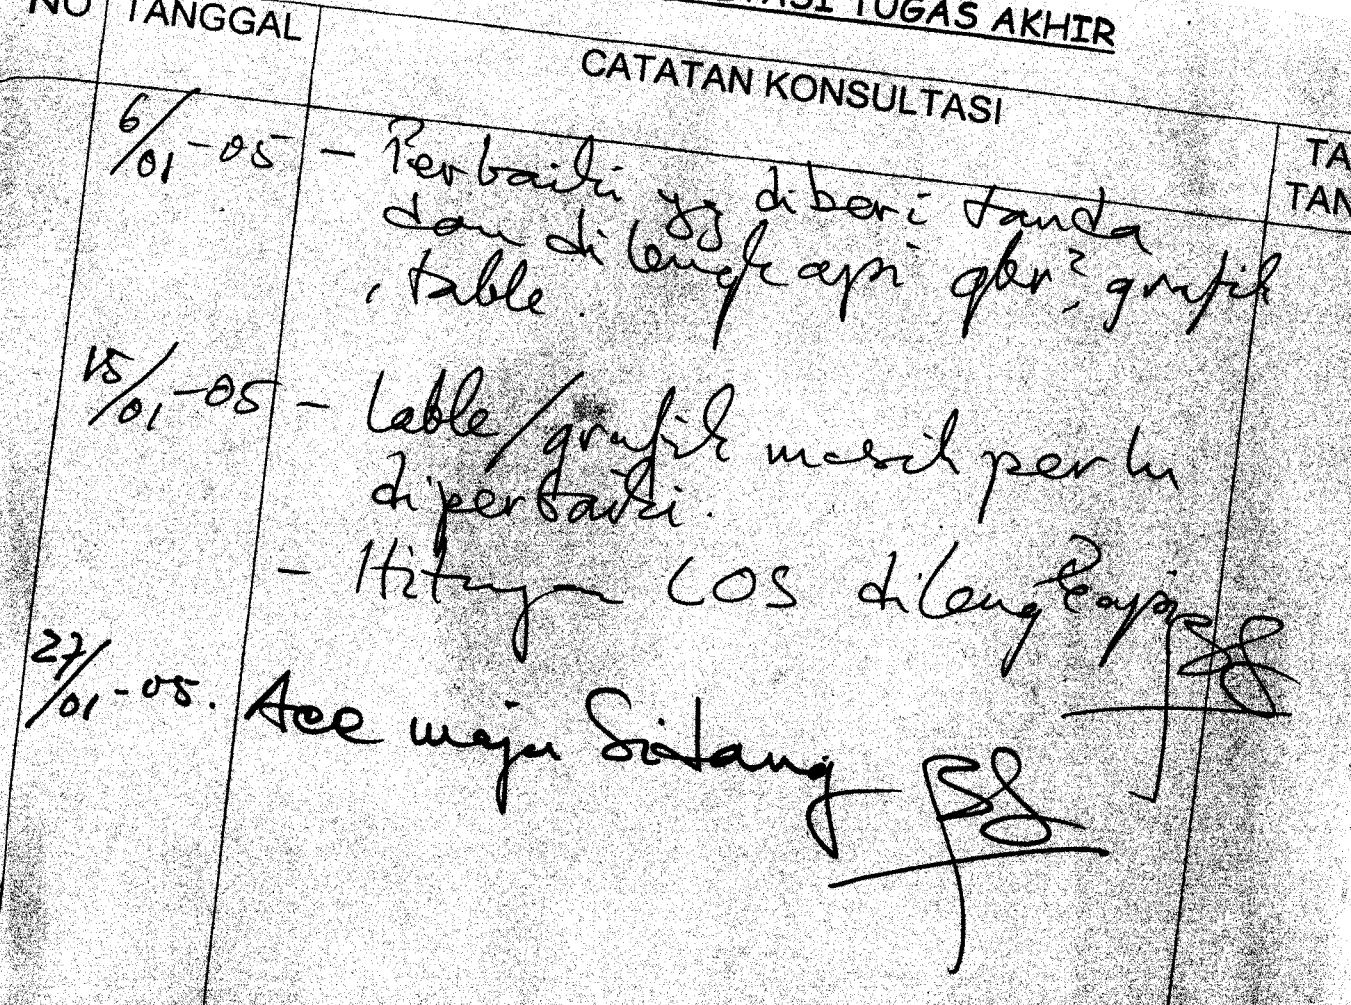 TUGAS AKHIR
NO TANGGAL CATATAN KONSULTASI TA
TAN
6/01-05 - Perbaiki yg diberi tanda
dan dilengkapi gbr², grafik
, table.
15/01-05 - table/grafik masih perlu
diperbaiki.
- Hitungan LOS dilengkapi
27/01-05. Acc maju Sidang